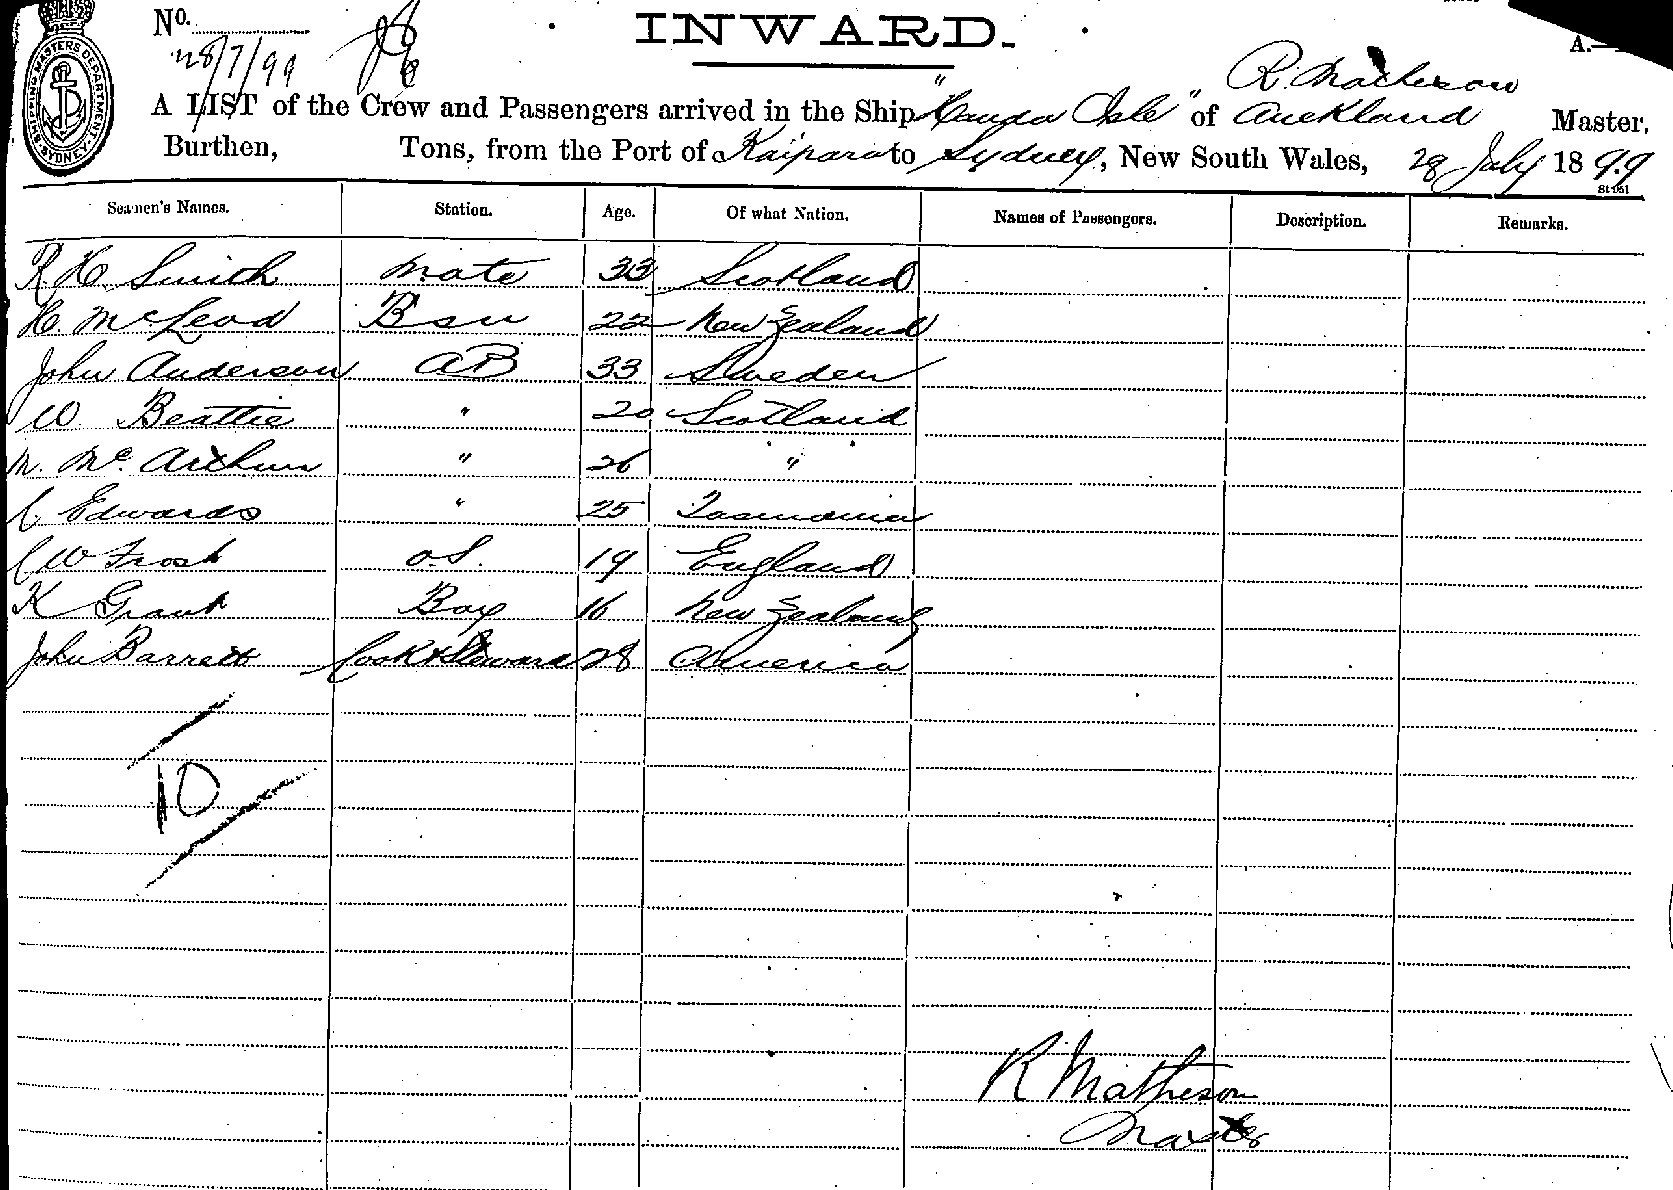 No.
28/7/99
INWARD.
SHIPPING MASTERS DEPARTMENT. SYDNEY.
R. Matheson
A LIST of the Crew and Passengers arrived in the Ship "Handa Isle" of Auckland Master,
Burthen, Tons, from the Port of Kaipara to Sydney, New South Wales, 28 July 1899
Seamen's Names. Station. Age. Of what Nation. Names of Passengers. Description. Remarks.
R H Smith Mate 33 Scotland
H. McLeod Bsn 22 New Zealand
John Anderson AB 33 Sweden
W Beattie " 20 Scotland
M. McArthur " 26 "
C Edwards " 25 Tasmania
C W Frost O.S. 19 England
K Grant Boy 16 New Zealand
John Barrett Cook & Steward 28 America
10
R Matheson
Master